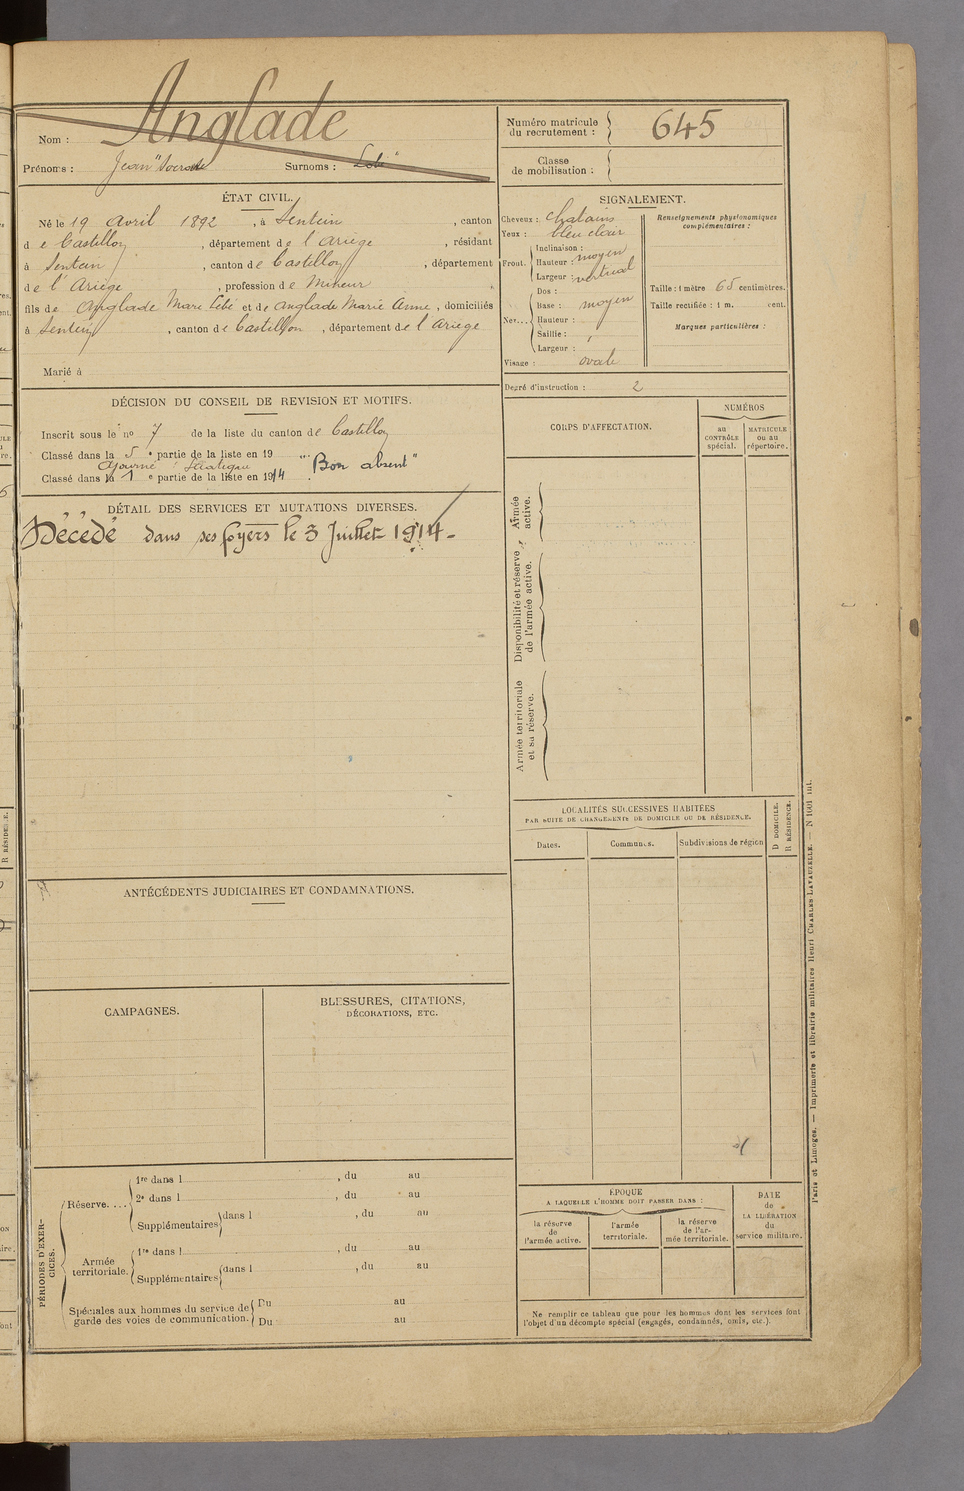 Nom : Anglade
Prénoms : Jean Surnoms :
Numéro matricule du recrutement : 645
Classe de mobilisation :
ÉTAT CIVIL.
Né le 19 Avril 1892, à Sentein, canton
de Castillon, département de l'Ariège, résidant
à Sentein, canton de Castillon, département
de l'Ariège, profession de Mineur.
fils de Anglade Marc et de Anglade Marie Anne, domiciliés
à Sentein, canton de Castillon, département de l'Ariège
Marié à
SIGNALEMENT.
Cheveux : chatains
Yeux : bleu clair
Front. Inclinaison :
Hauteur : moyen
Largeur : vertical
Nez... Dos :
Base : moyen
Hauteur :
Saillie :
Largeur :
Visage : ovale
Renseignements physionomiques
complémentaires :
Taille : 1 mètre 65 centimètres.
Taille rectifiée : 1 m. cent.
Marques particulières :
Degré d'instruction : 2
DÉCISION DU CONSEIL DE REVISION ET MOTIFS.
Inscrit sous le no 7 de la liste du canton de Castillon
Classé dans la 5e partie de la liste en 19
Ajourné "Bon absent"
Classé dans la 1e partie de la liste en 1914.
DÉTAIL DES SERVICES ET MUTATIONS DIVERSES.
Décédé dans ses foyers le 3 Juillet 1914.
CORPS D'AFFECTATION.
NUMÉROS
au CONTRÔLE spécial.
MATRICULE ou au répertoire.
Armée active.
Disponibilité et réserve de l'armée active.
Armée territoriale et sa réserve.
LOCALITÉS SUCCESSIVES HABITÉES
PAR SUITE DE CHANGEMENTS DE DOMICILE OU DE RÉSIDENCE.
Dates. Communes. Subdivisions de région
D DOMICILE.
R RÉSIDENCE.
ANTÉCÉDENTS JUDICIAIRES ET CONDAMNATIONS.
CAMPAGNES.
BLESSURES, CITATIONS,
DÉCORATIONS, ETC.
PÉRIODES D'EXERCICES.
Réserve....
1re dans l , du au
2e dans l , du au
Supplémentaires dans l , du au
Armée territoriale.
1re dans l , du au
Supplémentaires dans l , du au
Spéciales aux hommes du service de
garde des voies de communication.
Du au
Du au
ÉPOQUE
A LAQUELLE L'HOMME DOIT PASSER DANS :
la réserve de l'armée active.
l'armée territoriale.
la réserve de l'armée territoriale.
DATE de LA LIBÉRATION du service militaire.
Ne remplir ce tableau que pour les hommes dont les services font
l'objet d'un décompte spécial (engagés, condamnés, omis, etc.).
Paris et Limoges. — Imprimerie et librairie militaires Henri CHARLES-LAVAUZELLE. — N 1001 int.